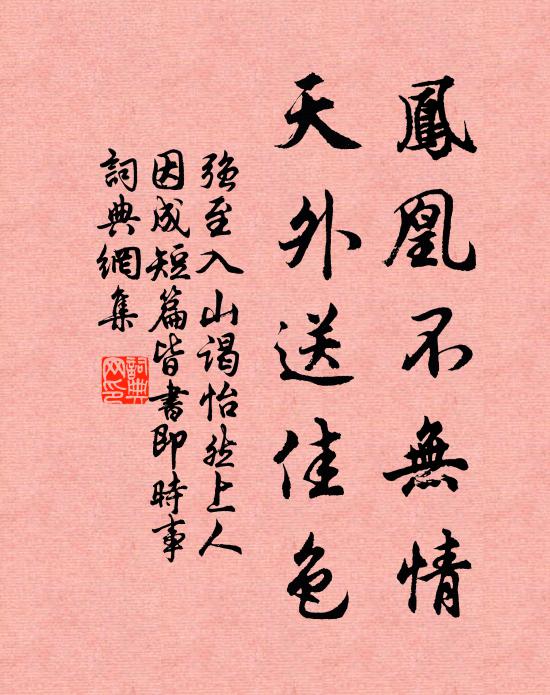 鳳凰不無情
天外送佳色
強至入山謁怡然上人
因成短篇皆書即時事
詞典網集
詞典
网印